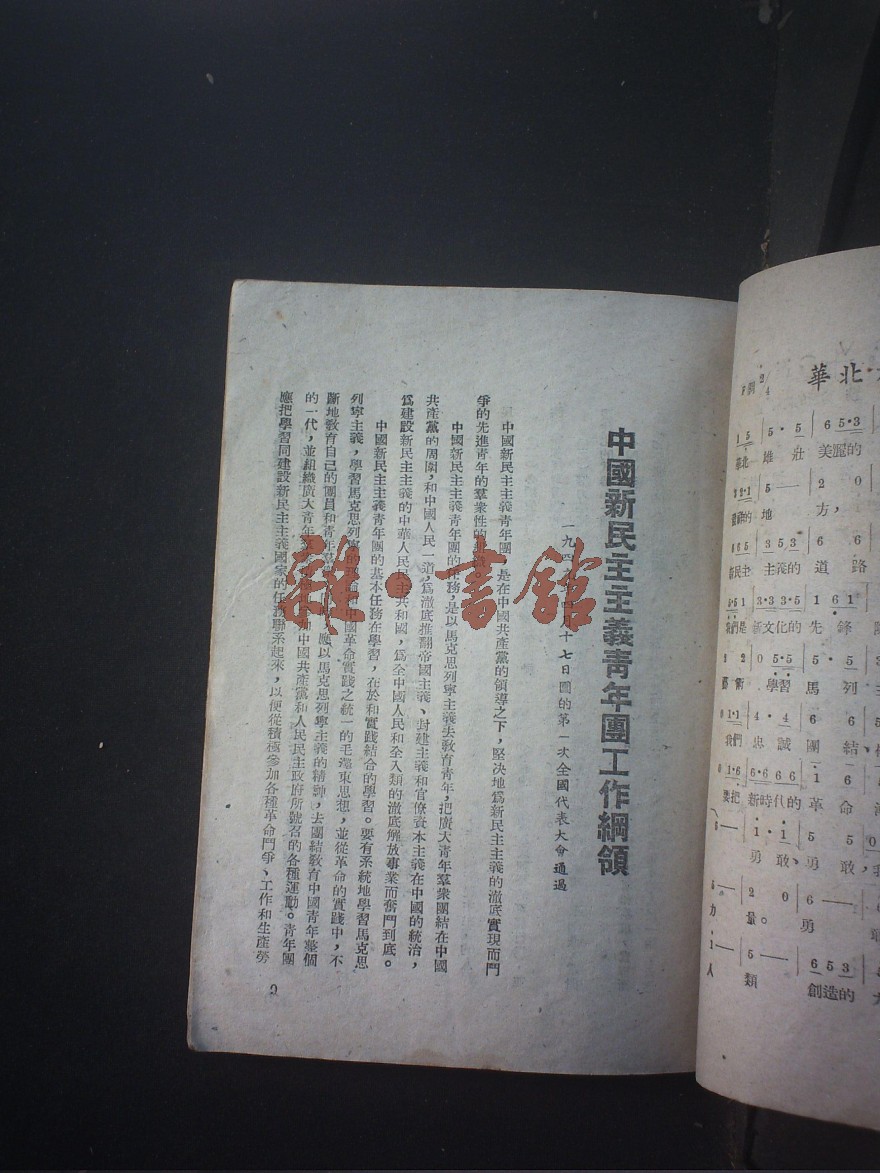 中國新民主主義青年團工作綱領
一九四 年四月十七日團的第一次全國代表大會通過
中國新民主主義青年團,是在中國共產黨的領導之下,堅决地爲新民主主義的澈底實現而鬥
爭的先進青年的羣衆性的
中國新民主主義青年團的任務,是以馬克思列寧主義去教育青年,把廣大青年羣衆團結在中國
共產黨的周圍,和中國人民一道,爲澈底推翻帝國主義、封建主義和官僚資本主義在中國的統治,
爲建設新民主主義的中華人民民主共和國,爲全中國人民和全人類的澈底解放事業而奮鬥到底。
中國新民主主義青年團的基本任務在學習,在於和實踐結合的學習。要有系統地學習馬克思
列寧主義,學習馬克思列寧的 中國革命實踐之統一的毛澤東思想,並從革命的實踐中,不
斷地教育自己的團員和青年羣 應以馬克思列寧主義的精神,去團結教育中國青年整個
的一代,並組織廣大青年羣 加中國共產黨和人民民主政府所號召的各種運動。青年團
應把學習同建設新民主主義國家的任務聯系起來,以便從積極參加各種革命鬥爭、工作和生產勞
9
雜·書館
華北
F調 2/4
1 5 | 5 · 5 | 6 5·3
華北 雄 壯 美麗的
3 2·1 | 5 — | 2 0
的 地 方,
1 6 5 | 3 5 3 | 6 6
新民主 主義的 道 路
5·5 1 | 3·3 3·5 | 1 6 1
我們是 新文化的 先 鋒
3 2 | 0 5·5 | 5 · 5
藝術 學習 馬 列
0 1·1 | 4 · 4 | 6 6
我們 忠 誠 團 結、
0 1·6 | 6·6 6 6 | 1 6
要把 新時代的 革 命
6 — | 1 · 1 | 5
勇 敢、 勇 敢,
5 — | 2 0 | 6 —
力 量。 勇
1 | 5 — | 6 5 3
人 類 創造的